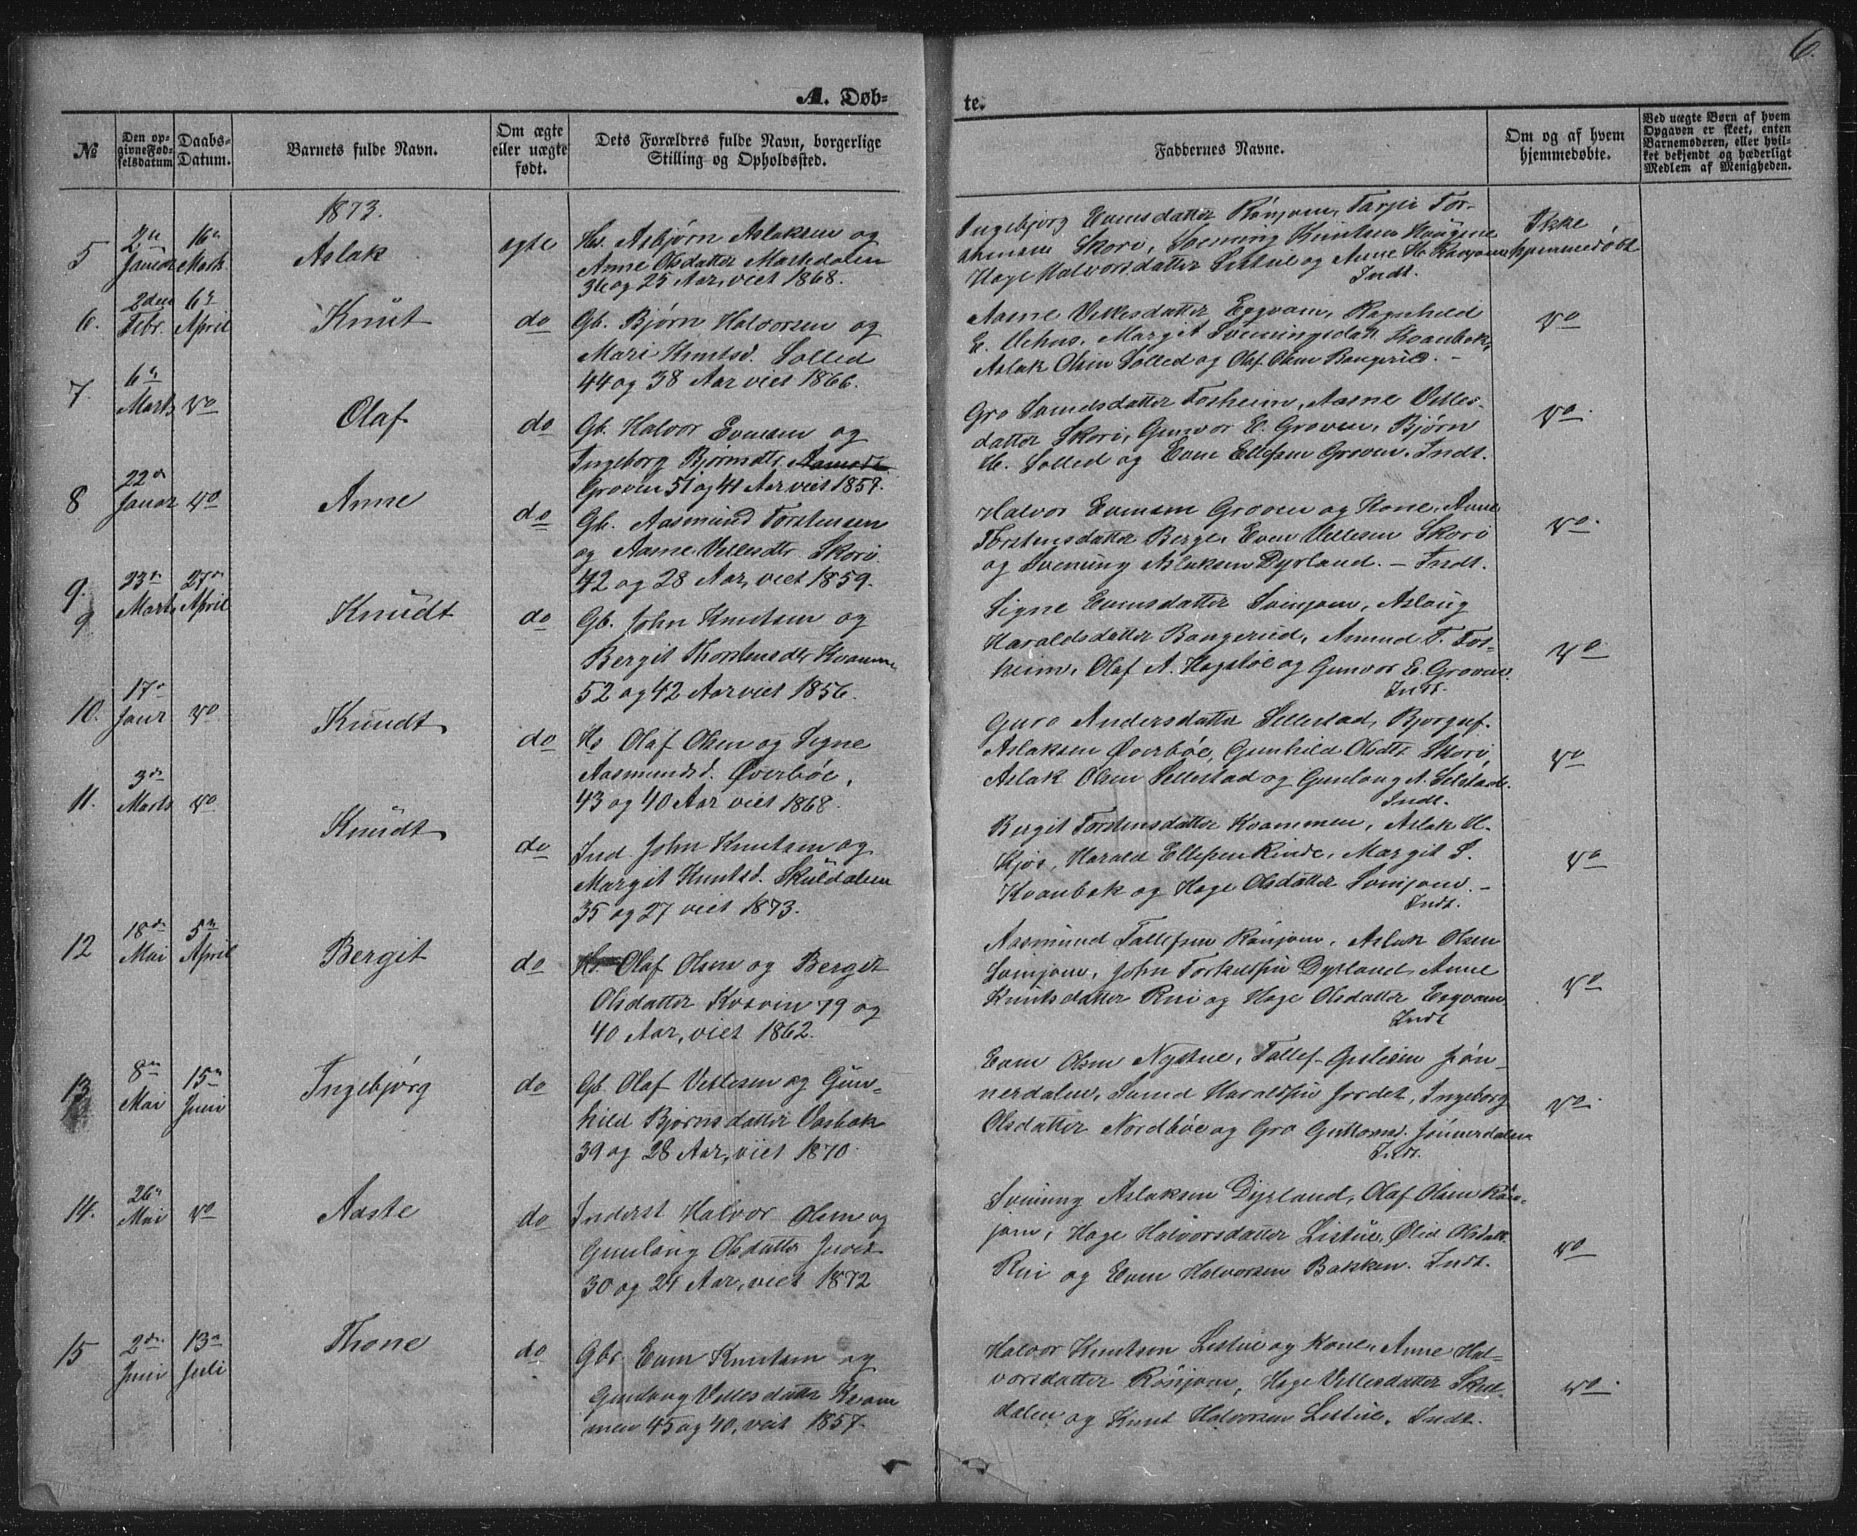 6.
A. Døb-
te.
№
Den op-
givne Fød-
selsdatum
Daabs-
Datum.
Barnets fulde Navn.
Om ægte
eller uægte
født.
Dets Forældres fulde Navn, borgerlige
Stilling og Opholdssted.
Faddernes Navne.
Om og af hvem
hjemmedøbte.
Ved uægte Børn af hvem
Opgaven er skeet, enten
Barnemoderen, eller hvil-
ket bekjendt og hæderligt
Medlem af Menigheden.
1873.
5
2den
Januar
16n
Mark
Aslak
egte
Hs. Asbjørn Aslaksen og
Anne Olsdatter Markdalen
36 og 25 Aar, viet 1868.
Ingebjorg Evensdatter Rønjom, Tarjei Tor-
stensen Skori, Sveining Knutsen Haugene
Hage Halvorsdatter Listul og Anne H. Rønjom
Indt.
Ikke
hjemmedøbt
6.
2den
Febr.
6n
April
Knut
do
Gb. Bjørn Halvorsen og
Mari Knutsd. Solled
44 og 38 Aar viet 1866.
Aasne Vetlesdatter Eggvam, Ragnhild
E. Uehus, Margit Sveningsdat Kvanbek,
Aslak Olsen Solled og Olaf Olsen Rongerud. -
do
7.
6n
Marts
do
Olaf
do
Gb. Halvor Evensen og
Ingeborg Bjornsdtr
Groven 51 og 41 Aar viet 1857.
Gro Svendsdatter Forsheim, Aasne Vetles-
datter Skori, Gunvor E. Groven, Bjørn
H. Solled og Even Ellefsen Groven. Indt.
do
8
22de
Januar
do
Anne
do
Gb. Aasmund Torstensen
og Aasne Vetlesdtr Skori
42 og 28 Aar, viet 1859.
Halvor Evensen Groven og Kone, Anne
Torstensdatter Berge, Even Vetlesen Skori
og Svening Aslaksen Dyrland. - Indt.
do
9.
9
23n
Marts
27n
April
Knudt
do
Gb. John Knutsen og
Bergit Thorstensdtr Kvamme
52 og 42 Aar viet 1856.
Signe Evensdatter Svinjom, Aslaug
Haraldsdatter Rongerud, Amund T. For-
heim, Olaf A. Hogstøe og Gunvor E. Groven
Indt.
do
10.
17n
Janr
do
Knudt
do
Hs Olaf Olsen og Signe
Aasmundsd. Øverbøe,
43 og 40 Aar viet 1868.
Guro Andersdatter Sellestad, Bjorguf.
Aslaksen Øverbøe, Gunhild Olsdtr Skori
Aslak Olsen Sellestad og Gunlaug A. Selstad.
Indt.
do
11.
3de
Marts
do
Knudt
do
Ind John Knutsen og
Margit Knutsd. Skuldalen
35 og 27 viet 1873.
Bergit Torstensdatter Kvammen, Aslak H.
Kjos, Harald Ellefsen Rinde, Margit S.
Kvanbek og Hage Olsdatter Svinjom. -
Indt.
do
12
18de
Mai
5n
April
Bergit
do
Olaf Olsen og Bergit
Olsdatter Kvavin 79 og
40 Aar, viet 1862.
Aasmund Tallefsen Rønjom, Aslak Olsen
Svinjom, John Torkelsen Dyrland, Anne
Knutsdatter Rui og Hage Olsdatter Eggvam
Indt
do
13
8n
Mai
15n
Juni
Ingebjørg
do
Gb. Olaf Vetlesen og Gun-
hild Bjørnsdatter Vasbak
39 og 28 Aar, viet 1870.
Even Olsen Nystue, Tallef Gisleien Jøn-
nerdalen, Svend Haraldsen Jordet, Ingeborg
Olsdatter Nordbøe og Gro Guttormsd. Jønnerdalen
Indt.
do
14.
26n
Mai
do
Aaste
do
Inderst Halvor Olsen og
Gunlaug Olsdatter Juvet
30 og 24 Aar, viet 1872
Svening Aslaksen Dyrland, Olaf Olsen Røn-
jom, Hage Halvorsdatter Listul, Ølid Olsdatt
Rui og Even Halvorsen Bakken. Indt.
do
15
2de
Juni
13n
Juli
Thone
do
Gbr. Even Knutsen og
Gunlaug Vetlesdatter Kvam
men 45 og 40, viet 1857.
Halvor Knutsen Listul og Kone, Anne Hal-
vorsdatter Rønjom, Hage Vetlesdatter Skul-
dalen og Knut Halvorsen Listul. Indt.
do